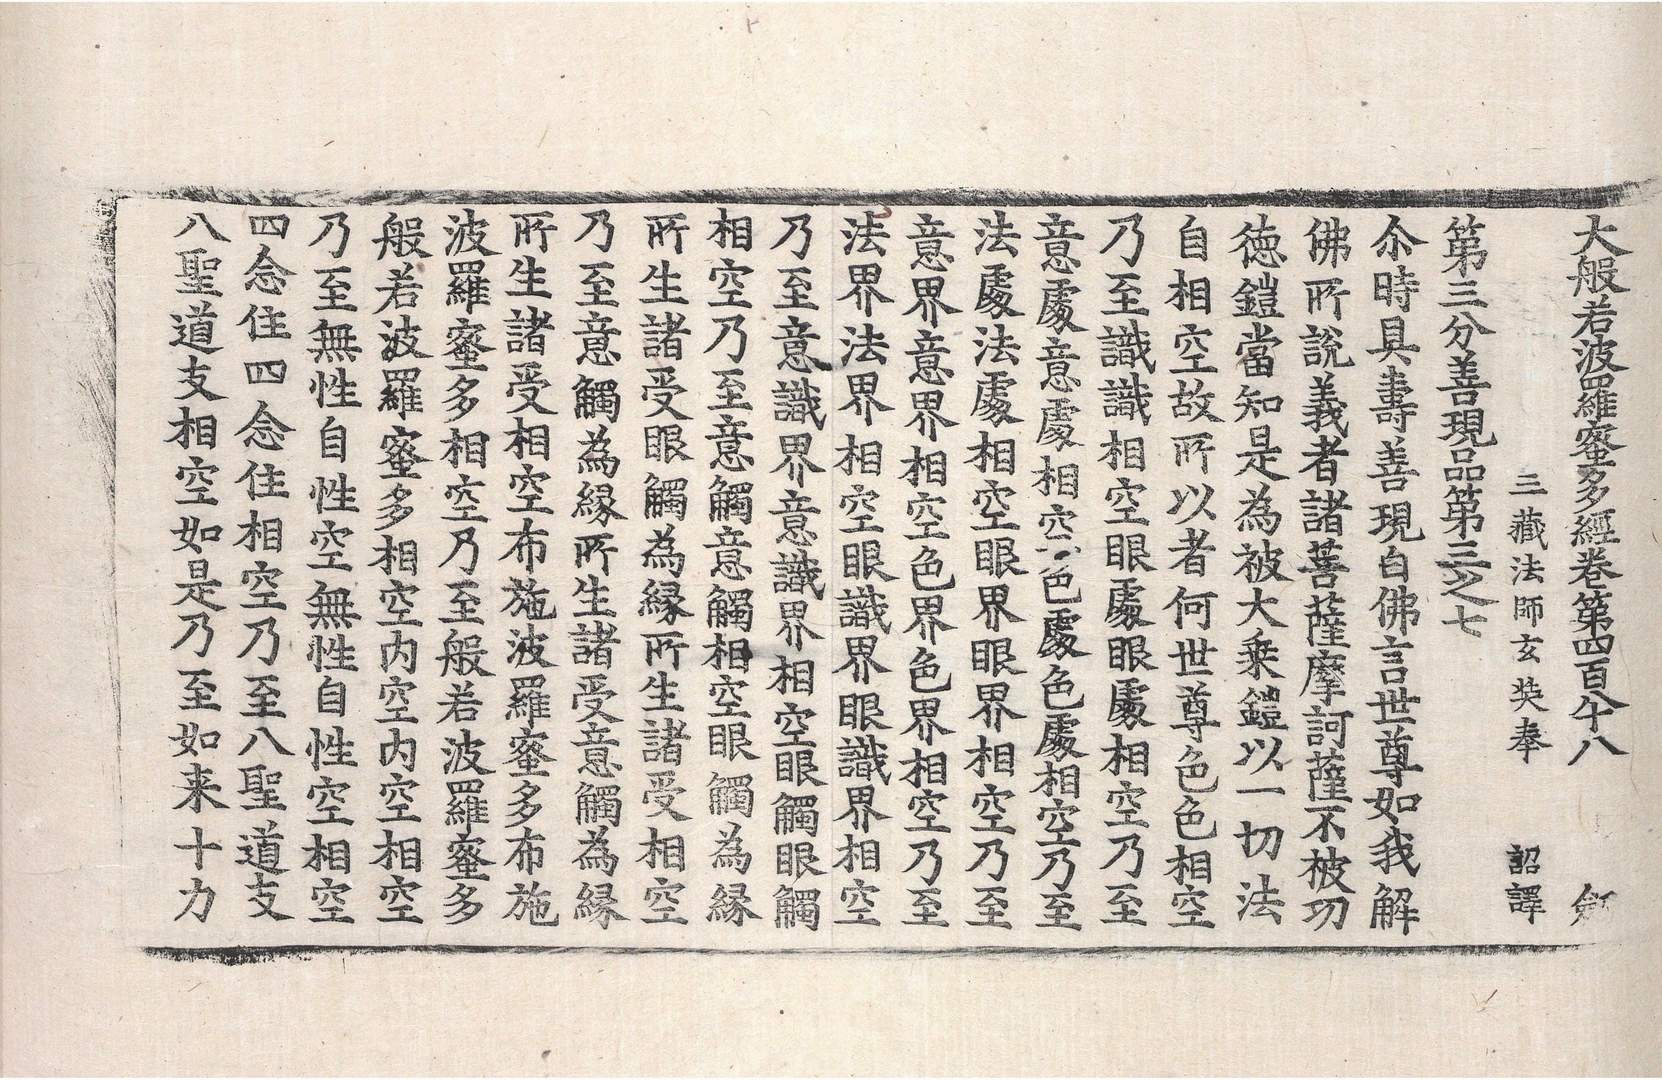 大般若波羅蜜多經卷第四百八十八 劒
三藏法師玄奘奉 詔譯
第三分善現品第三之七
尒時具壽善現白佛言世尊如我解
佛所說義者諸菩薩摩訶薩不被功
徳鎧當知是為被大乘鎧以一切法
自相空故所以者何世尊色色相空
乃至識識相空眼處眼處相空乃至
意處意處相空色處色處相空乃至
法處法處相空眼界眼界相空乃至
意界意界相空色界色界相空乃至
法界法界相空眼識界眼識界相空
乃至意識界意識界相空眼觸眼觸
相空乃至意觸意觸相空眼觸為縁
所生諸受眼觸為縁所生諸受相空
乃至意觸為縁所生諸受意觸為縁
所生諸受相空布施波羅蜜多布施
波羅蜜多相空乃至般若波羅蜜多
般若波羅蜜多相空内空内空相空
乃至無性自性空無性自性空相空
四念住四念住相空乃至八聖道支
八聖道支相空如是乃至如来十力